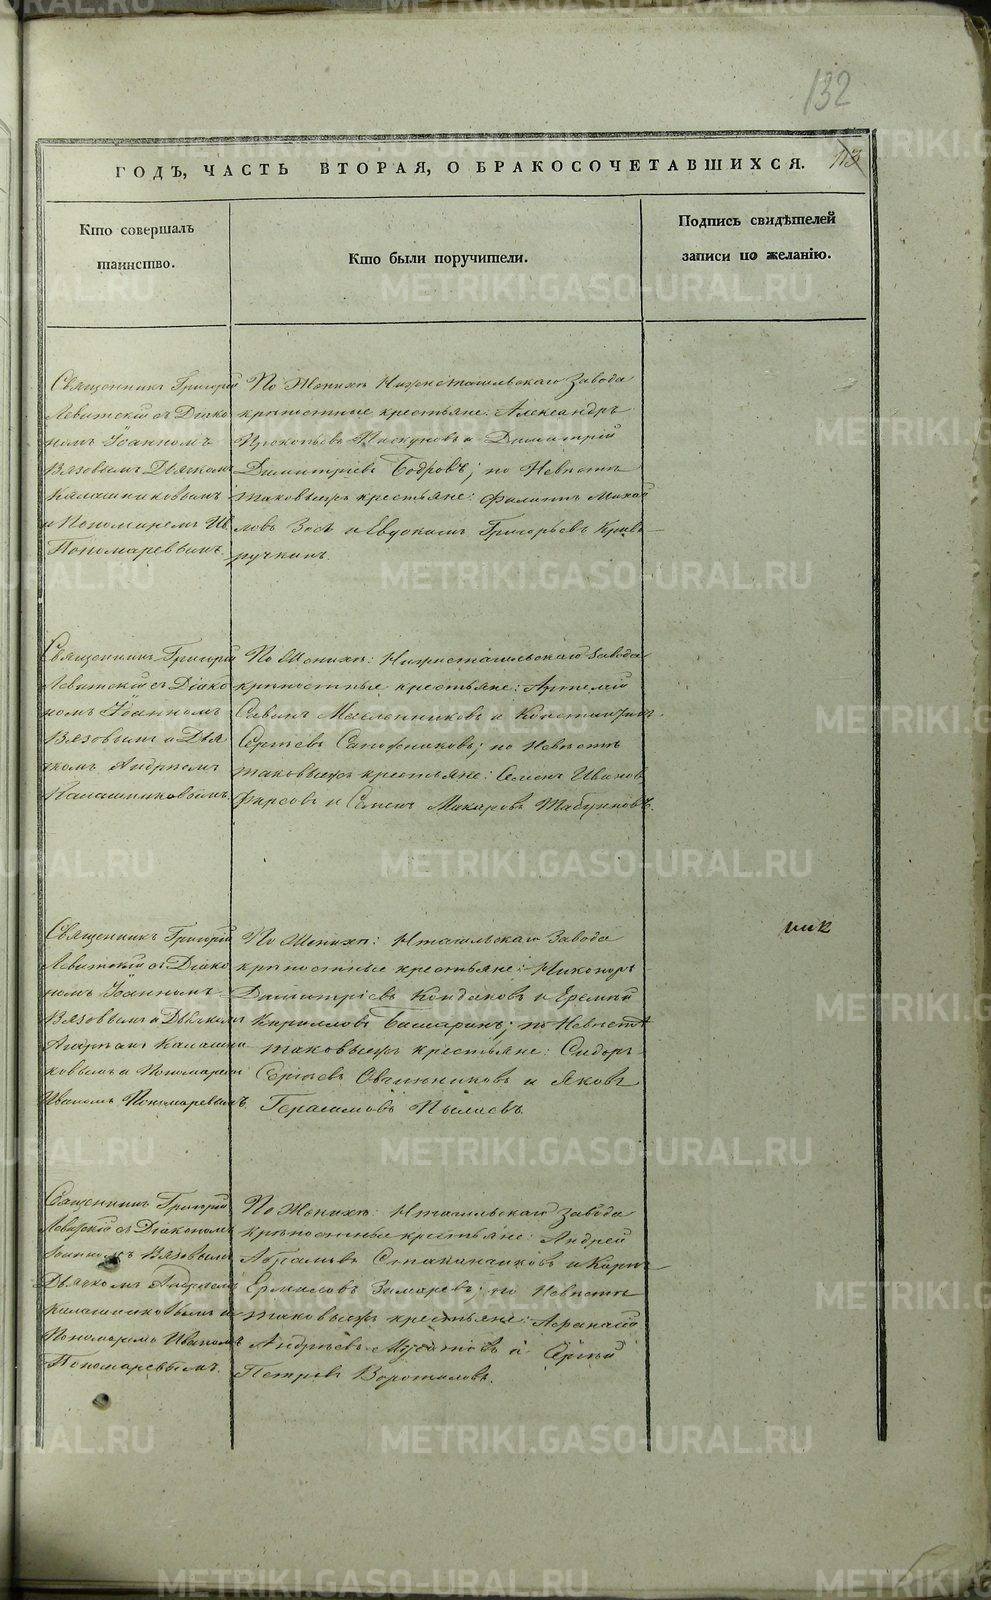 132
ГОДЪ, ЧАСТЬ ВТОРАЯ, О БРАКОСОЧЕТАВШИХСЯ.
113
Кто совершалъ
таинство.
Кто были поручители.
Подпись свидѣтелей
записи по желанію.
Священникъ Григорій
Левитскій съ Діако
номъ Іоанномъ
Вязовымъ Дьячкомъ
Калашниковымъ
и Пономаремъ Ив
Пономаревымъ.
По Женихѣ Нижнетагильскаго Завода
крѣпостные крестьяне: Александръ
Прокопьевъ Пискуновъ и Димитрій
Димитріевъ Бодровъ; по Невѣстѣ
таковыежъ крестьяне: Филиппъ Михай
ловъ и Евдокимъ Григорьевъ Криво
ручкинъ.
Священникъ Григорій
Левитскій съ Діако
номъ Іоанномъ
Вязовымъ и Дья
чкомъ Андреемъ
Калашниковымъ.
По Женихѣ: Нижнетагильскаго Завода
крѣпостные крестьяне: Артемій
Савинъ Масленниковъ и Константинъ
Сергѣевъ Сапожниковъ; по Невѣстѣ
таковыежъ крестьяне: Семенъ Ивановъ
Фирсовъ и Семенъ Макаровъ Табунковъ.
Священникъ Григорій
Левитскій съ Діако
номъ Іоанномъ
Вязовымъ и Дьячкомъ
Андреемъ Калашни
ковымъ и Пономаремъ
Иваномъ Пономаревымъ.
По Женихѣ: Нтагильскаго Завода
крѣпостные крестьяне: Никоноръ
Димитріевъ Кондаковъ и Еремѣй
Кириловъ Башаринъ; по Невѣстѣ
таковыежъ крестьяне: Сидоръ
Сергѣевъ Овчинниковъ и Яковъ
Герасимовъ Пылаевъ.
Священникъ Григорій
Левитскій съ Діакономъ
Іоанномъ Вязовымъ
Дьячкомъ Андреемъ
Калашниковымъ и
Пономаремъ Иваномъ
Пономаревымъ.
По Женихѣ: Нтагильскаго Завода
крѣпостные крестьяне: Андрей
Абрамовъ Стаканчиковъ и Карпъ
Ермиловъ Зимаревъ; по Невѣстѣ
таковыежъ крестьяне: Афанасій
Андреевъ и Сергѣй
Петровъ Ворошиловъ.
METRIKI.GASO-URAL.RU